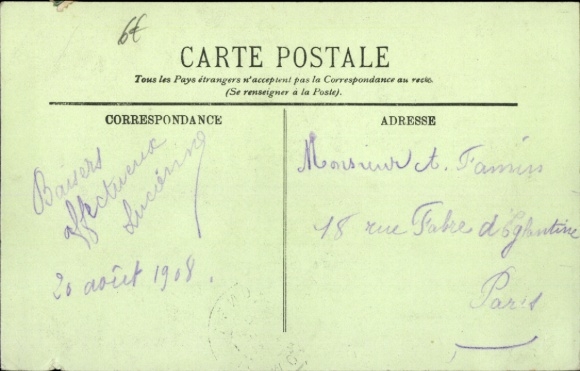 6€
CARTE POSTALE
Tous les Pays étrangers n'acceptent pas la Correspondance au recto.
(Se renseigner à la Poste).
CORRESPONDANCE
Baisers
affectueux
Lucienne
20 août 1908.
ADRESSE
Monsieur A. Famin
18 rue Fabre d'Eglantine
Paris